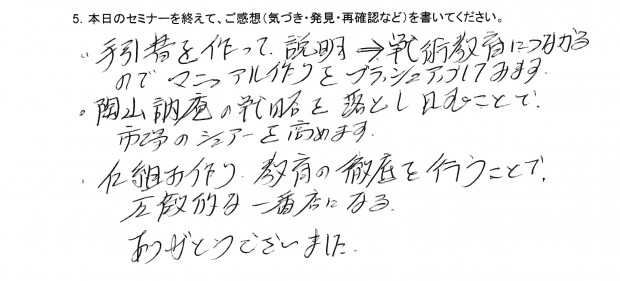 5. 本日のセミナーを終えて、ご感想(気づき・発見・再確認など)を書いてください。
。手引書を作って 説明 → 戦術教育につながる
ので マニュアル作りをブラッシュアップしてみます.
。陶山訥庵の戦略を落とし込むことで.
市場のシェアーを高めます.
・仕組み作り 教育の徹底を行うことで,
圧倒的な一番店になる.
ありがとうございました.